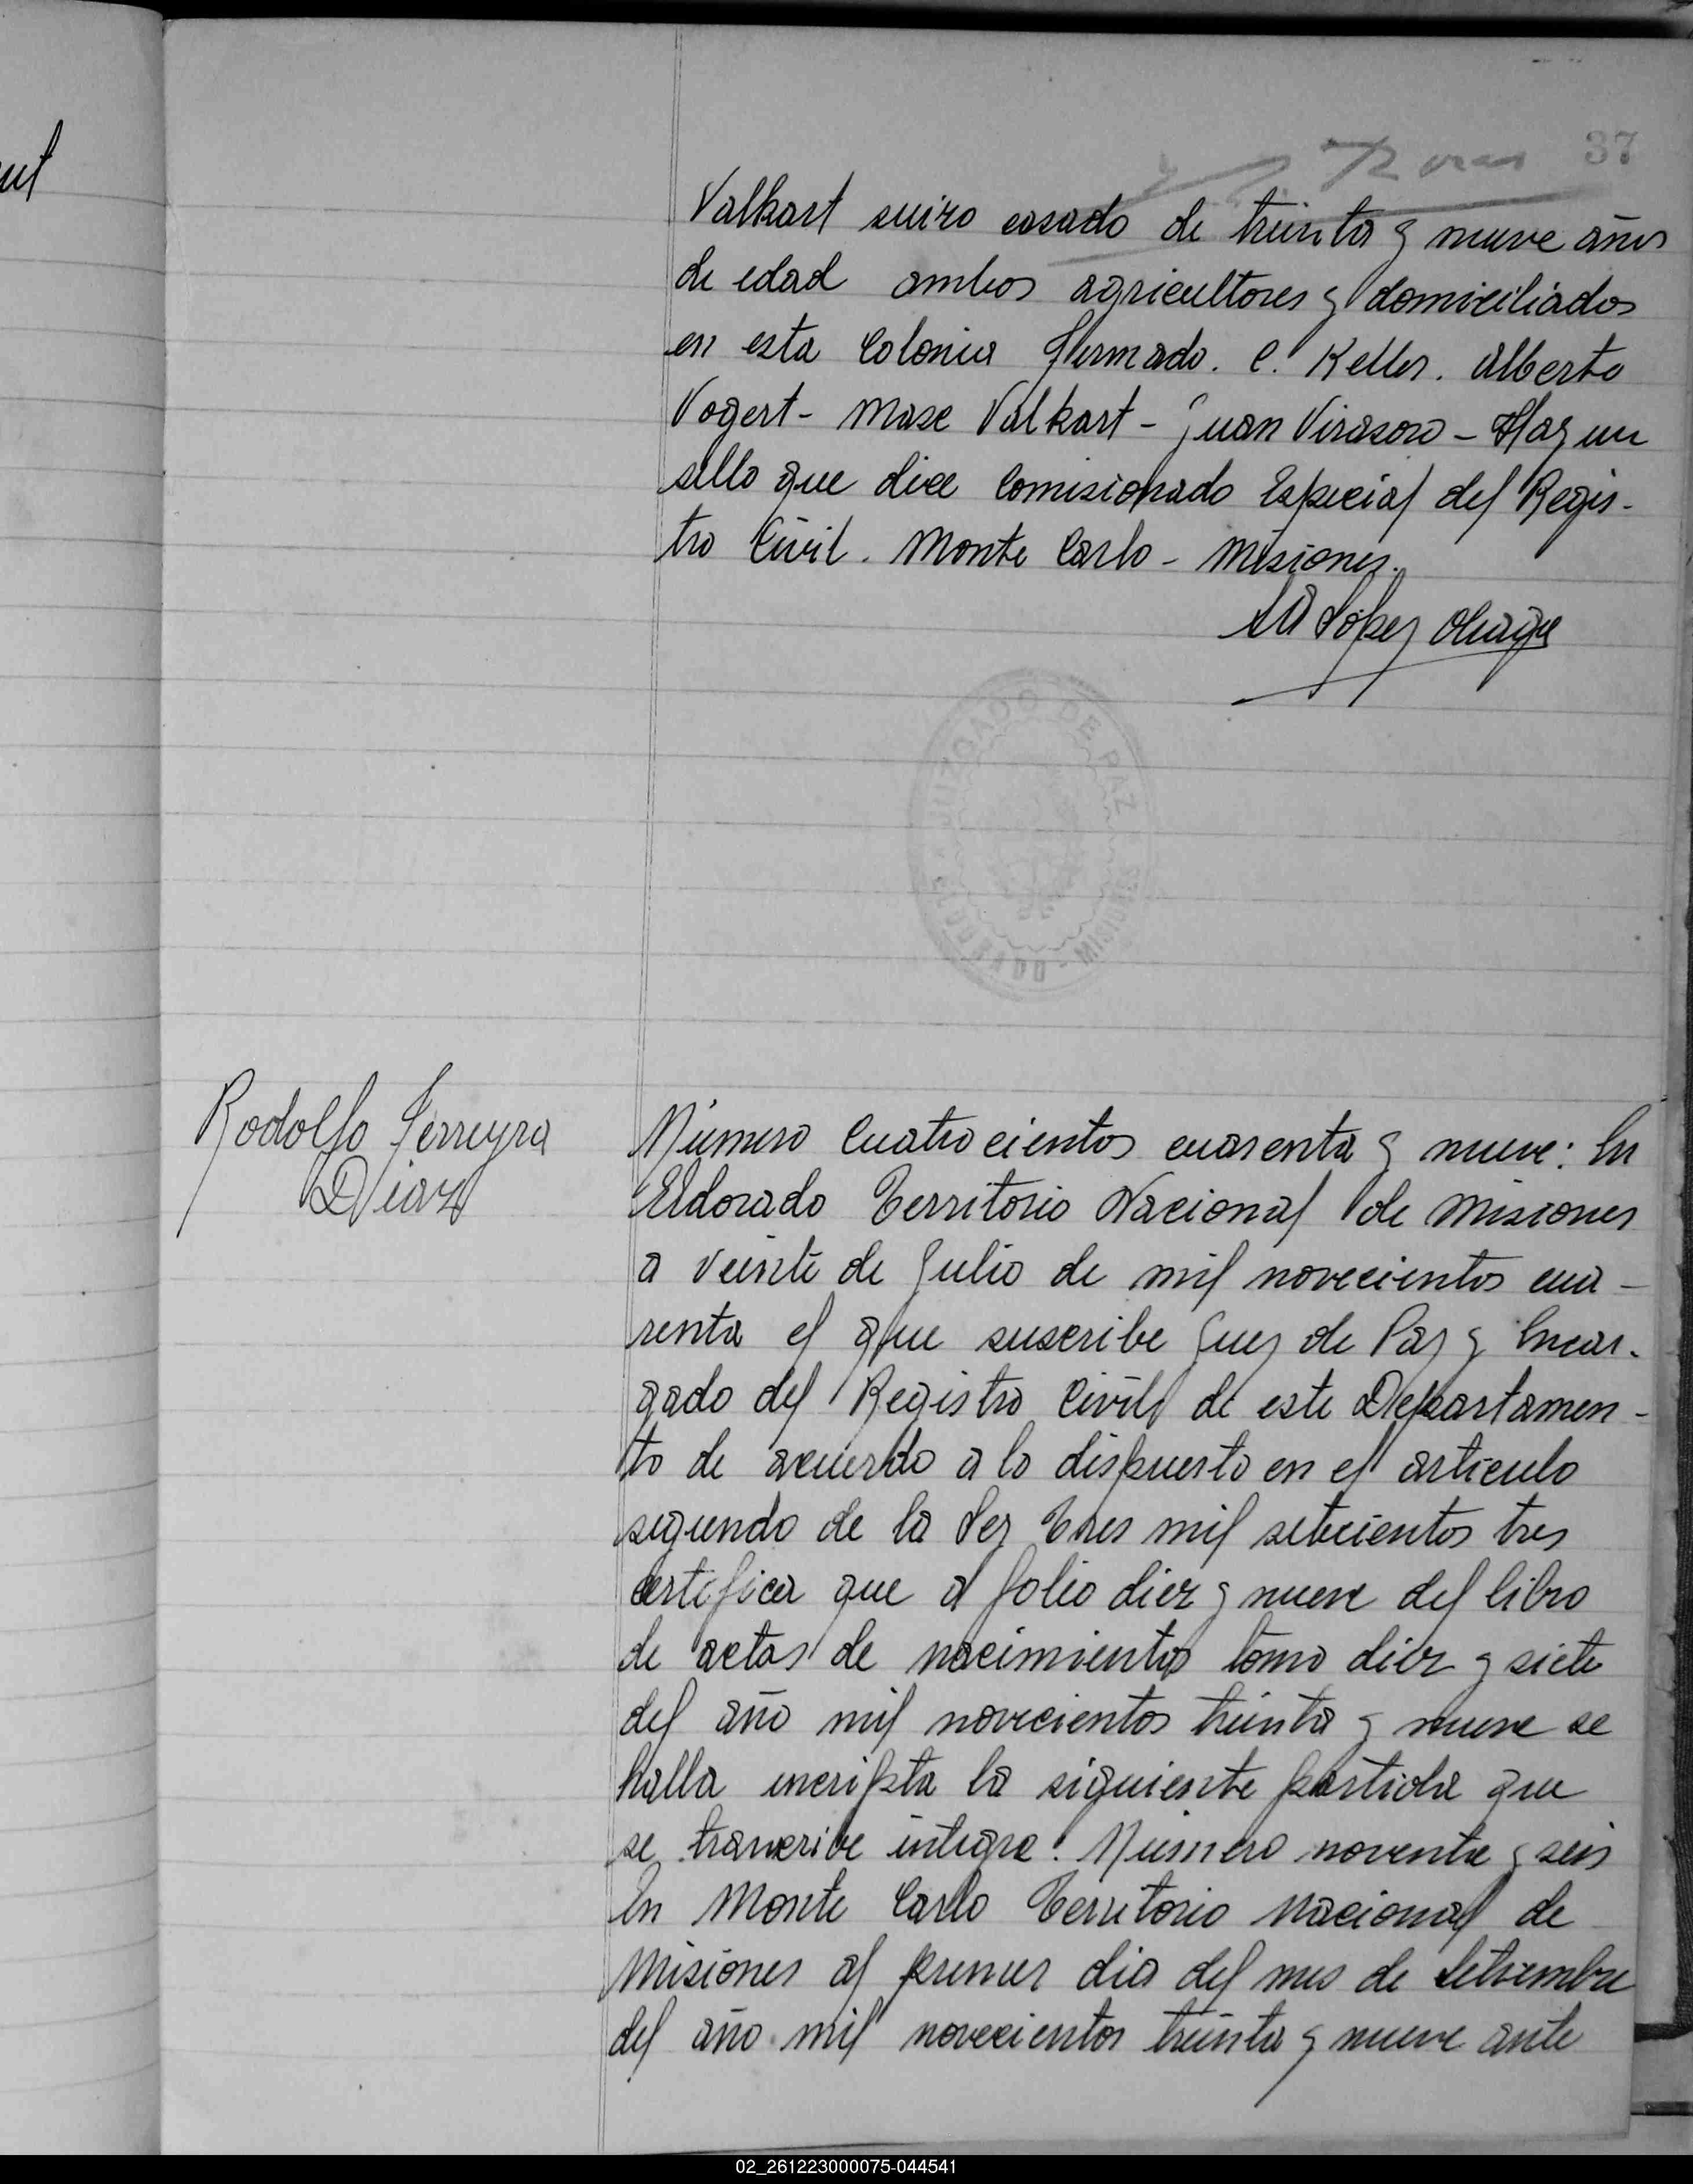 37
Valkart suizo casado de treinta y nueve años
de edad ambos agricultores y domiciliados
en esta Colonia Firmado. C. Keller. Alberto
Vogert - Maxe Valkart - Juan Virasoro - Hay un
sello que dice Comisionado Especial del Regis-
tro Civil. Monte Carlo - Misiones.
Lopez
JUZGADO DE PAZ
Rodolfo Ferreyra
Diaz
Número Cuatrocientos cuarenta y nueve: En
Eldorado Territorio Nacional de Misiones
a veinte de Julio de mil novecientos cua-
renta el que suscribe Juez de Paz y Encar-
gado del Registro Civil de este Departamen-
to de acuerdo a lo dispuesto en el articulo
segundo de la Ley Tres mil setecientos tres
certifica que al folio diez y nueve del libro
de actas de nacimientos tomo diez y siete
del año mil novecientos treinta y nueve se
halla incripta la siguiente partida que
se trancribe integra: Número noventa y seis
En Monte Carlo Territorio Nacional de
Misiones al primer dia del mes de Setiembre
del año mil novecientos treinta y nueve ante
02_261223000075-044541